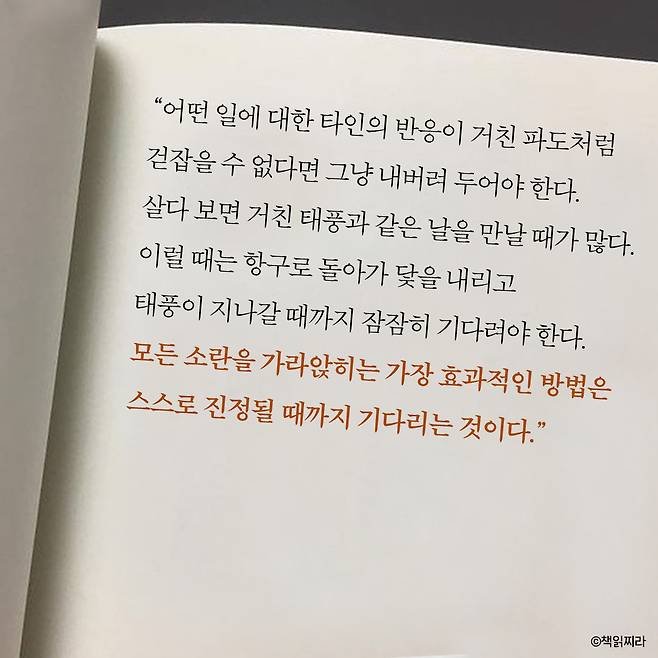 “어떤 일에 대한 타인의 반응이 거친 파도처럼
걷잡을 수 없다면 그냥 내버려 두어야 한다.
살다 보면 거친 태풍과 같은 날을 만날 때가 많다.
이럴 때는 항구로 돌아가 닻을 내리고
태풍이 지나갈 때까지 잠잠히 기다려야 한다.
모든 소란을 가라앉히는 가장 효과적인 방법은
스스로 진정될 때까지 기다리는 것이다.”
©책읽찌라